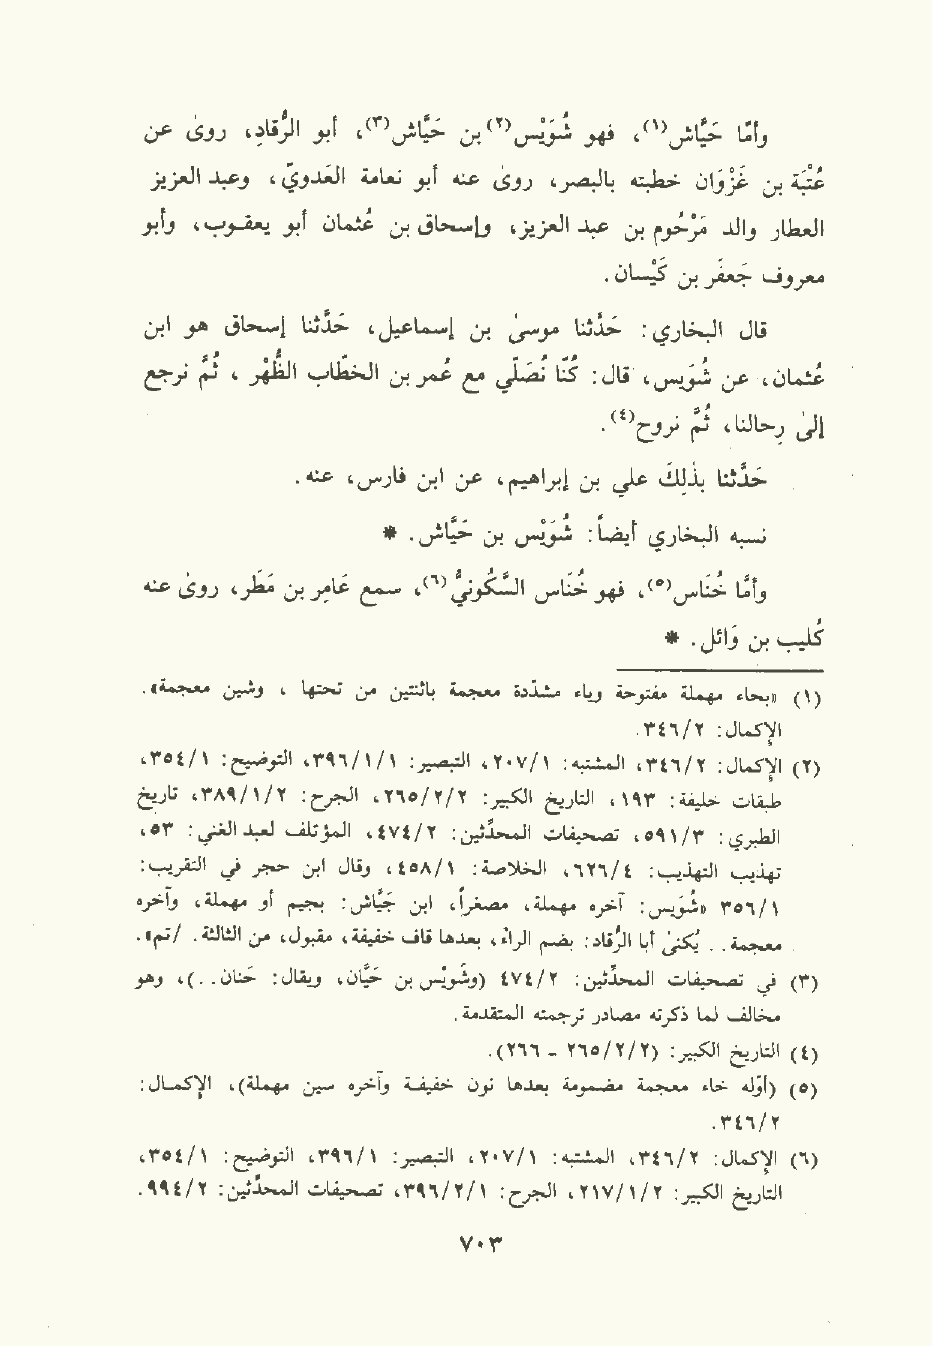 وأمّا حَيَّاش(١)، فهو شُوَيْس(٢) بن حَيَّاش(٣)، أبو الرُّقادِ، روىٰ عن
عُتْبَة بن غَزْوَان خطبته بالبصر، روىٰ عنه أبو نعامة العَدويّ، وعبد العزيز
العطار والد مَرْحُوم بن عبد العزيز، وإسحاق بن عُثمان أبو يعقـوب، وأبو
معروف جَعفَر بن كَيْسـان.
قال البخاري: حَدّثنا موسىٰ بن إسماعيل، حَدّثنا إسحاق هو ابن
عُثمان، عن شُوَيس، قال: كُنّا نُصَلّي مع عُمر بن الخطّاب الظُّهْر، ثُمَّ نرجع
إلىٰ رِحالنا، ثُمَّ نروح(٤).
حَدَّثنا بذٰلِكَ علي بن إبراهيم، عن ابن فارس، عنه.
نسبه البخاري أيضاً: شُوَيْس بن حَيَّاش. *
وأمّا خُنَاس(٥)، فهو خُنَاس السَّكُونيُّ(٦)، سمع عَامِر بن مَطَر، روىٰ عنه
كُليب بن وَائل. *
(١) «بحاء مهملة مفتوحة وياء مشدّدة معجمة باثنتين من تحتها، وشين معجمة».
الإكمال: ٣٤٦/٢.
(٢) الإكمال: ٣٤٦/٢، المشتبه: ٢٠٧/١، التبصير: ٣٩٦/١/١، التوضيح: ٣٥٤/١،
طبقات خليفة: ١٩٣، التاريخ الكبير: ٢٦٥/٢/٢، الجرح: ٣٨٩/١/٢، تاريخ
الطبري: ٥٩١/٣، تصحيفات المحدّثين: ٤٧٤/٢، المؤتلف لعبد الغني: ٥٣،
تهذيب التهذيب: ٦٢٦/٤، الخلاصة: ٤٥٨/١، وقال ابن حجر في التقريب:
٣٥٦/١ «شُوَيس: آخره مهملة، مصغراً، ابن حَيَّاش: بجيم أو مهملة، وآخره
معجمة.. يُكنىٰ أبا الرُقاد: بضم الراء، بعدها قاف خفيفة، مقبول، من الثالثة. /تم».
(٣) في تصحيفات المحدّثين: ٤٧٤/٢ (وشُويْس بن حَيَّان، ويقال: حَنان..)، وهو
مخالف لما ذكرته مصادر ترجمته المتقدمة.
(٤) التاريخ الكبير: (٢٦٥/٢/٢ - ٢٦٦).
(٥) (أوّله خاء معجمة مضمومة بعدها نون خفيفـة وآخره سين مهملة)، الإكمـال:
٣٤٦/٢.
(٦) الإكمال: ٣٤٦/٢، المشتبه: ٢٠٧/١، التبصير: ٣٩٦/١، التوضيح: ٣٥٤/١،
التاريخ الكبير: ٢١٧/١/٢، الجرح: ٣٩٦/٢/١، تصحيفات المحدّثين: ٩٩٤/٢.
٧٠٣